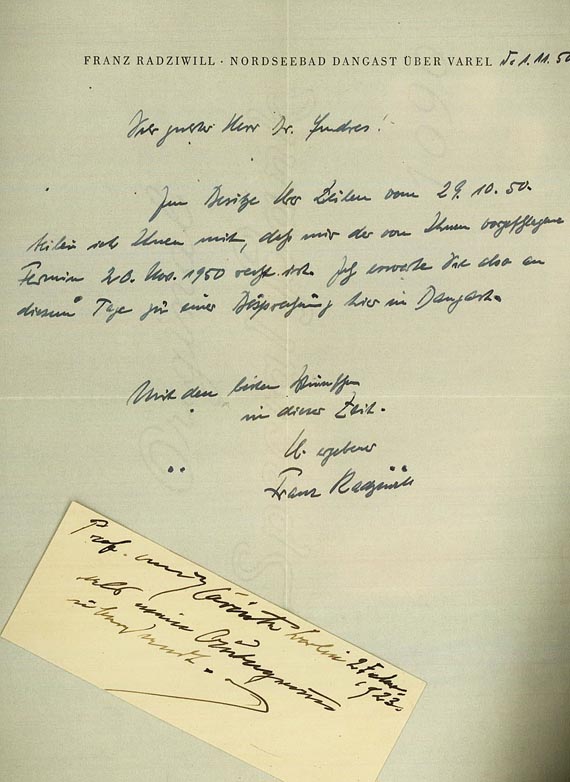 FRANZ RADZIWILL · NORDSEEBAD DANGAST ÜBER VAREL D. 1.11.50
Sehr geehrter Herr Dr. Endres!
Im Besitze Ihrer Zeilen vom 29.10.50.
teile ich Ihnen mit, daß mir der von Ihnen vorgeschlagene
Termin 20. Nov. 1950 recht ist. Ich erwarte Sie also an
diesem Tage zu einer Besprechung hier in Dangast.
Mit den besten Wünschen
in dieser Zeit.
Ihr ergebener
Franz Radziwill
Prof. Corinth Berlin
als meine
1923.